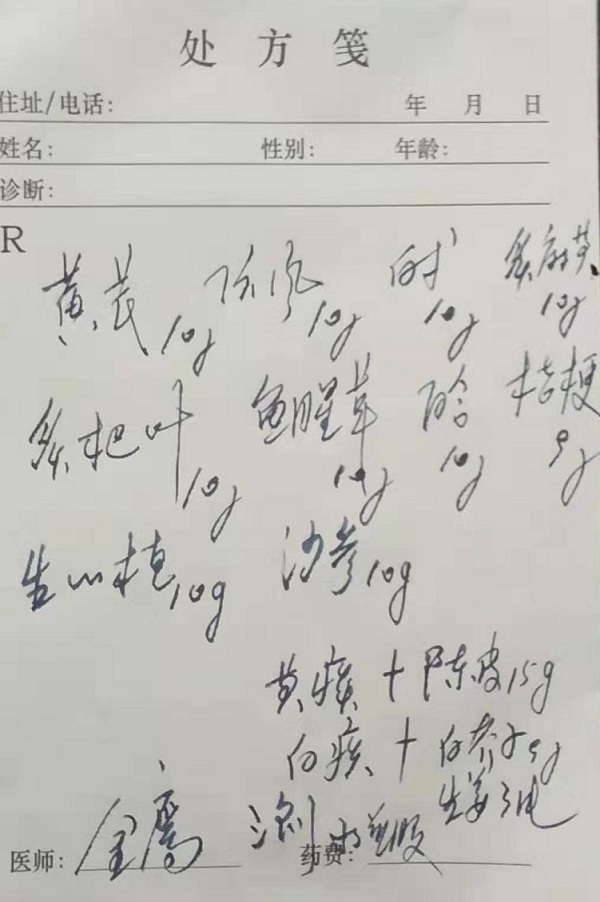 处方笺
住址/电话: 年 月 日
姓名: 性别: 年龄:
诊断:
R
黄芪 10g 防风 10g 白术 10g 炙麻黄 10g
炙杷叶 10g 鱼腥草 10g 百合 10g 桔梗 9g
生山楂 10g 沙参 10g
黄痰+陈皮15g
白痰+白芥子9g
生姜3片
医师: 药费: